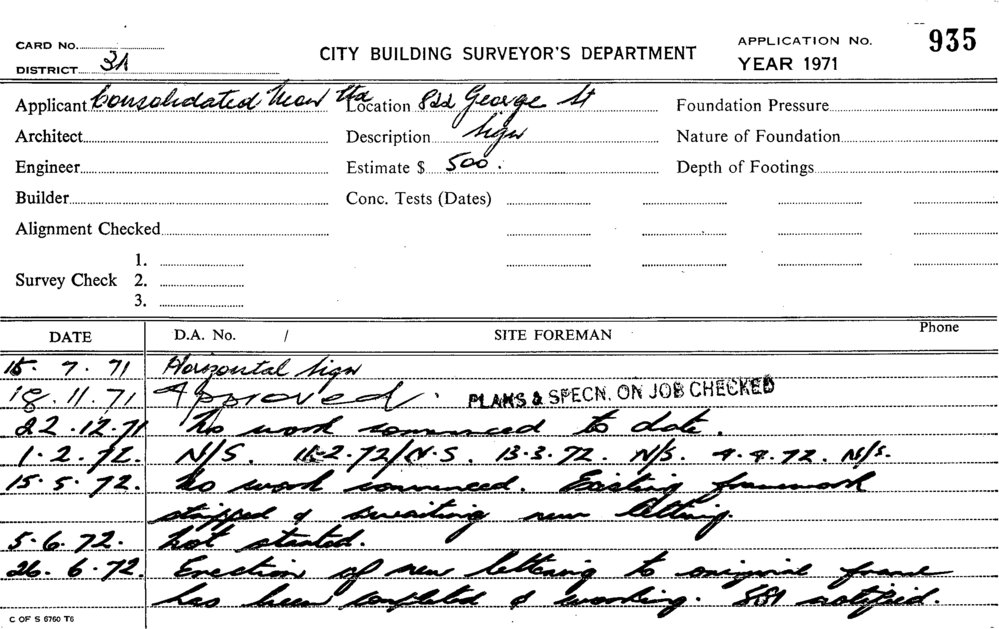 CARD No.
DISTRICT 3A
CITY BUILDING SURVEYOR'S DEPARTMENT
APPLICATION No. 935
YEAR 1971
Applicant Consolidated Neon Location 822 George St Foundation Pressure
Architect Description Sign Nature of Foundation
Engineer Estimate $ 500. Depth of Footings
Builder Conc. Tests (Dates)
Alignment Checked
1.
Survey Check 2.
3.
DATE D.A. No. / SITE FOREMAN Phone
15. 7. 71 Horizontal Sign
18.11.71 Approved. PLANS & SPECN. ON JOB CHECKED
22.12.71 No work commenced to date.
1.2.72. N/S. 2.72/N.S. 13.3.72. N/S. 4.4.72. N/S.
15.5.72. No work commenced. Existing framework
stripped & awaiting new lettering.
5.6.72. Not started.
26.6.72. Erection of new lettering to original frame
has been completed & working. notified.
C OF S 6760 T6